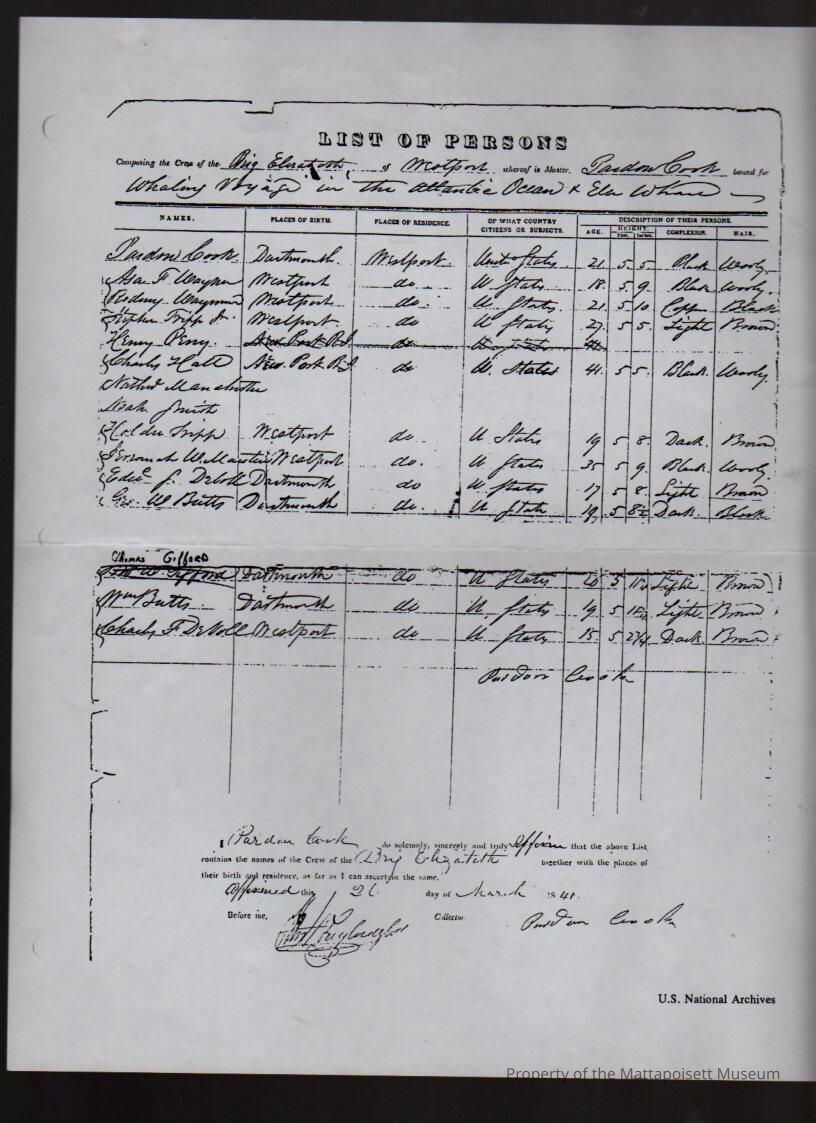 LIST OF PERSONS
Composing the Crew of the Brig Elizabeth of Westport whereof is Master, Pardon Cook bound for
Whaling Voyage in the Atlantic Ocean & Else Where
NAMES. PLACES OF BIRTH. PLACES OF RESIDENCE. OF WHAT COUNTRY CITIZENS OR SUBJECTS. DESCRIPTION OF THEIR PERSONS.
AGE. HEIGHT. Feet. Inches. COMPLEXION. HAIR.
Pardon Cook Dartmouth Westport United States 21 5 5 Black Wooly
Asa F Wayner Westport do U States 18 5 9 Black Wooly
Rodney Waynner Westport do U States 21 5 10 Copp Black
Stephen Tripp Jr Westport do U States 27 5 5 Light Brown
Henry Perry New Port R I do
Charls Hall New Port R I do U. States 41 5 5 Black Wooly
Nathl Manchester
Smith
Holder Tripp Westport do U States 19 5 8 Dark Brown
Westport do. U States 35 5 9 Black Wooly
J. DeVoll Dartmouth do U States 17 5 8 Light Brown
Geo W Butts Dartmouth do. U State 19 5 8½ Dark Black
Thomas Gifford
Gifford Dartmouth do U States 20 5 Light Brown
Wm Butts Dartmouth do U States 19 5 Light Brown
Charls F DeVoll Westport do U States 15 5 2¼ Dark Brown
Pardon Cook
I Pardon Cook do solemnly, sincerely and truly affirm that the above List
contains the names of the Crew of the Brig Elizabeth together with the places of
their birth and residence, as far as I can ascertain the same.
Affirmed this 26 day of March 1841.
Before me, Collector. Pardon Cook
U.S. National Archives
Property of the Mattapoisett Museum